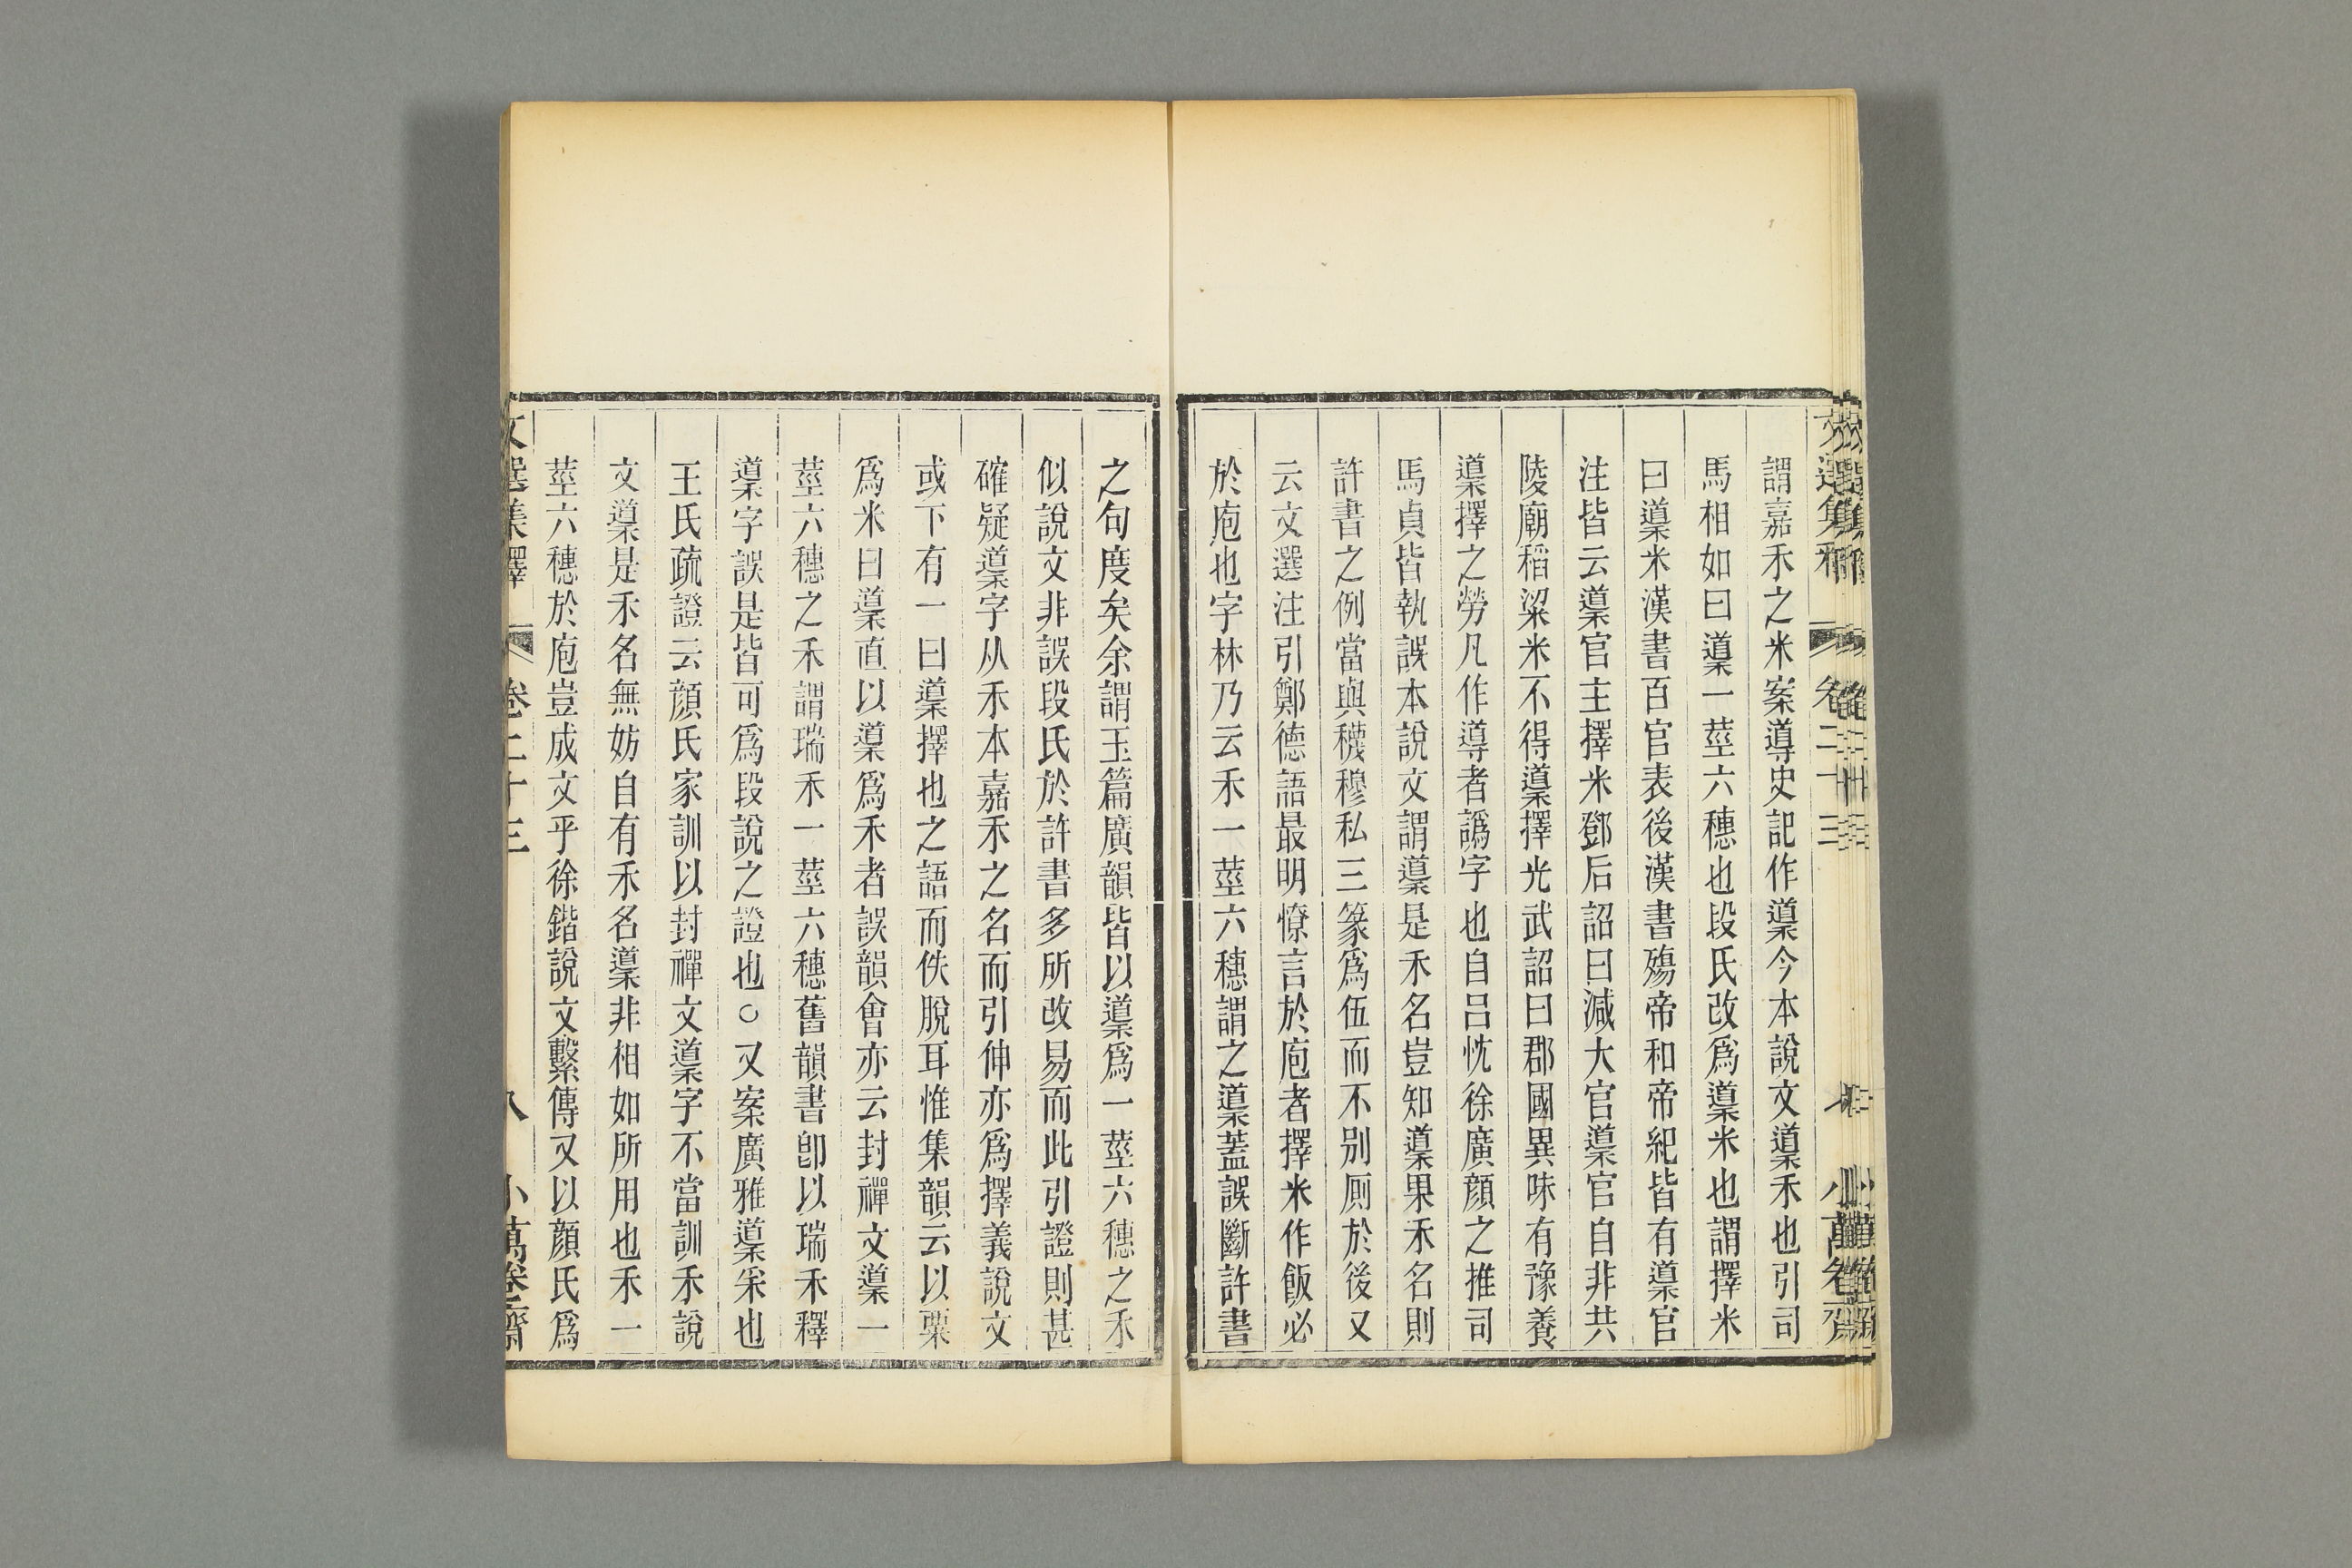 文選集釋 卷二十三 小萬卷齋
謂嘉禾之米案導史記作䆃今本說文䆃禾也引司
馬相如曰䆃一莖六穗也段氏改爲䆃米也謂擇米
曰䆃米漢書百官表後漢書殤帝和帝紀皆有䆃官
注皆云䆃官主擇米鄧后詔曰減大官䆃官自非共
陵廟稻粱米不得䆃擇光武詔曰郡國異味有豫養
䆃擇之勞凡作導者譌字也自呂忱徐廣顏之推司
馬貞皆執誤本說文謂䆃是禾名豈知䆃果禾名則
許書之例當與穖穆私三篆爲伍而不別厠於後又
云文選注引鄭德語最明憭言於庖者擇米作飯必
於庖也字林乃云禾一莖六穗謂之䆃葢誤斷許書
之句度矣余謂玉篇廣韻皆以䆃爲一莖六穗之禾
似說文非誤段氏於許書多所改易而此引證則甚
確疑䆃字从禾本嘉禾之名而引伸亦爲擇義說文
或下有一曰䆃擇也之語而佚脫耳惟集韻云以粟
爲米曰䆃直以䆃爲禾者誤韻會亦云封禪文䆃一
莖六穗之禾謂瑞禾一莖六穗舊韻書卽以瑞禾釋
䆃字誤是皆可爲段說之證也○又案廣雅䆃采也
王氏疏證云顏氏家訓以封禪文䆃字不當訓禾說
文䆃是禾名無妨自有禾名䆃非相如所用也禾一
莖六穗於庖豈成文乎徐鍇說文繫傳又以顏氏爲
文選集釋 卷二十三 八 小萬卷齋